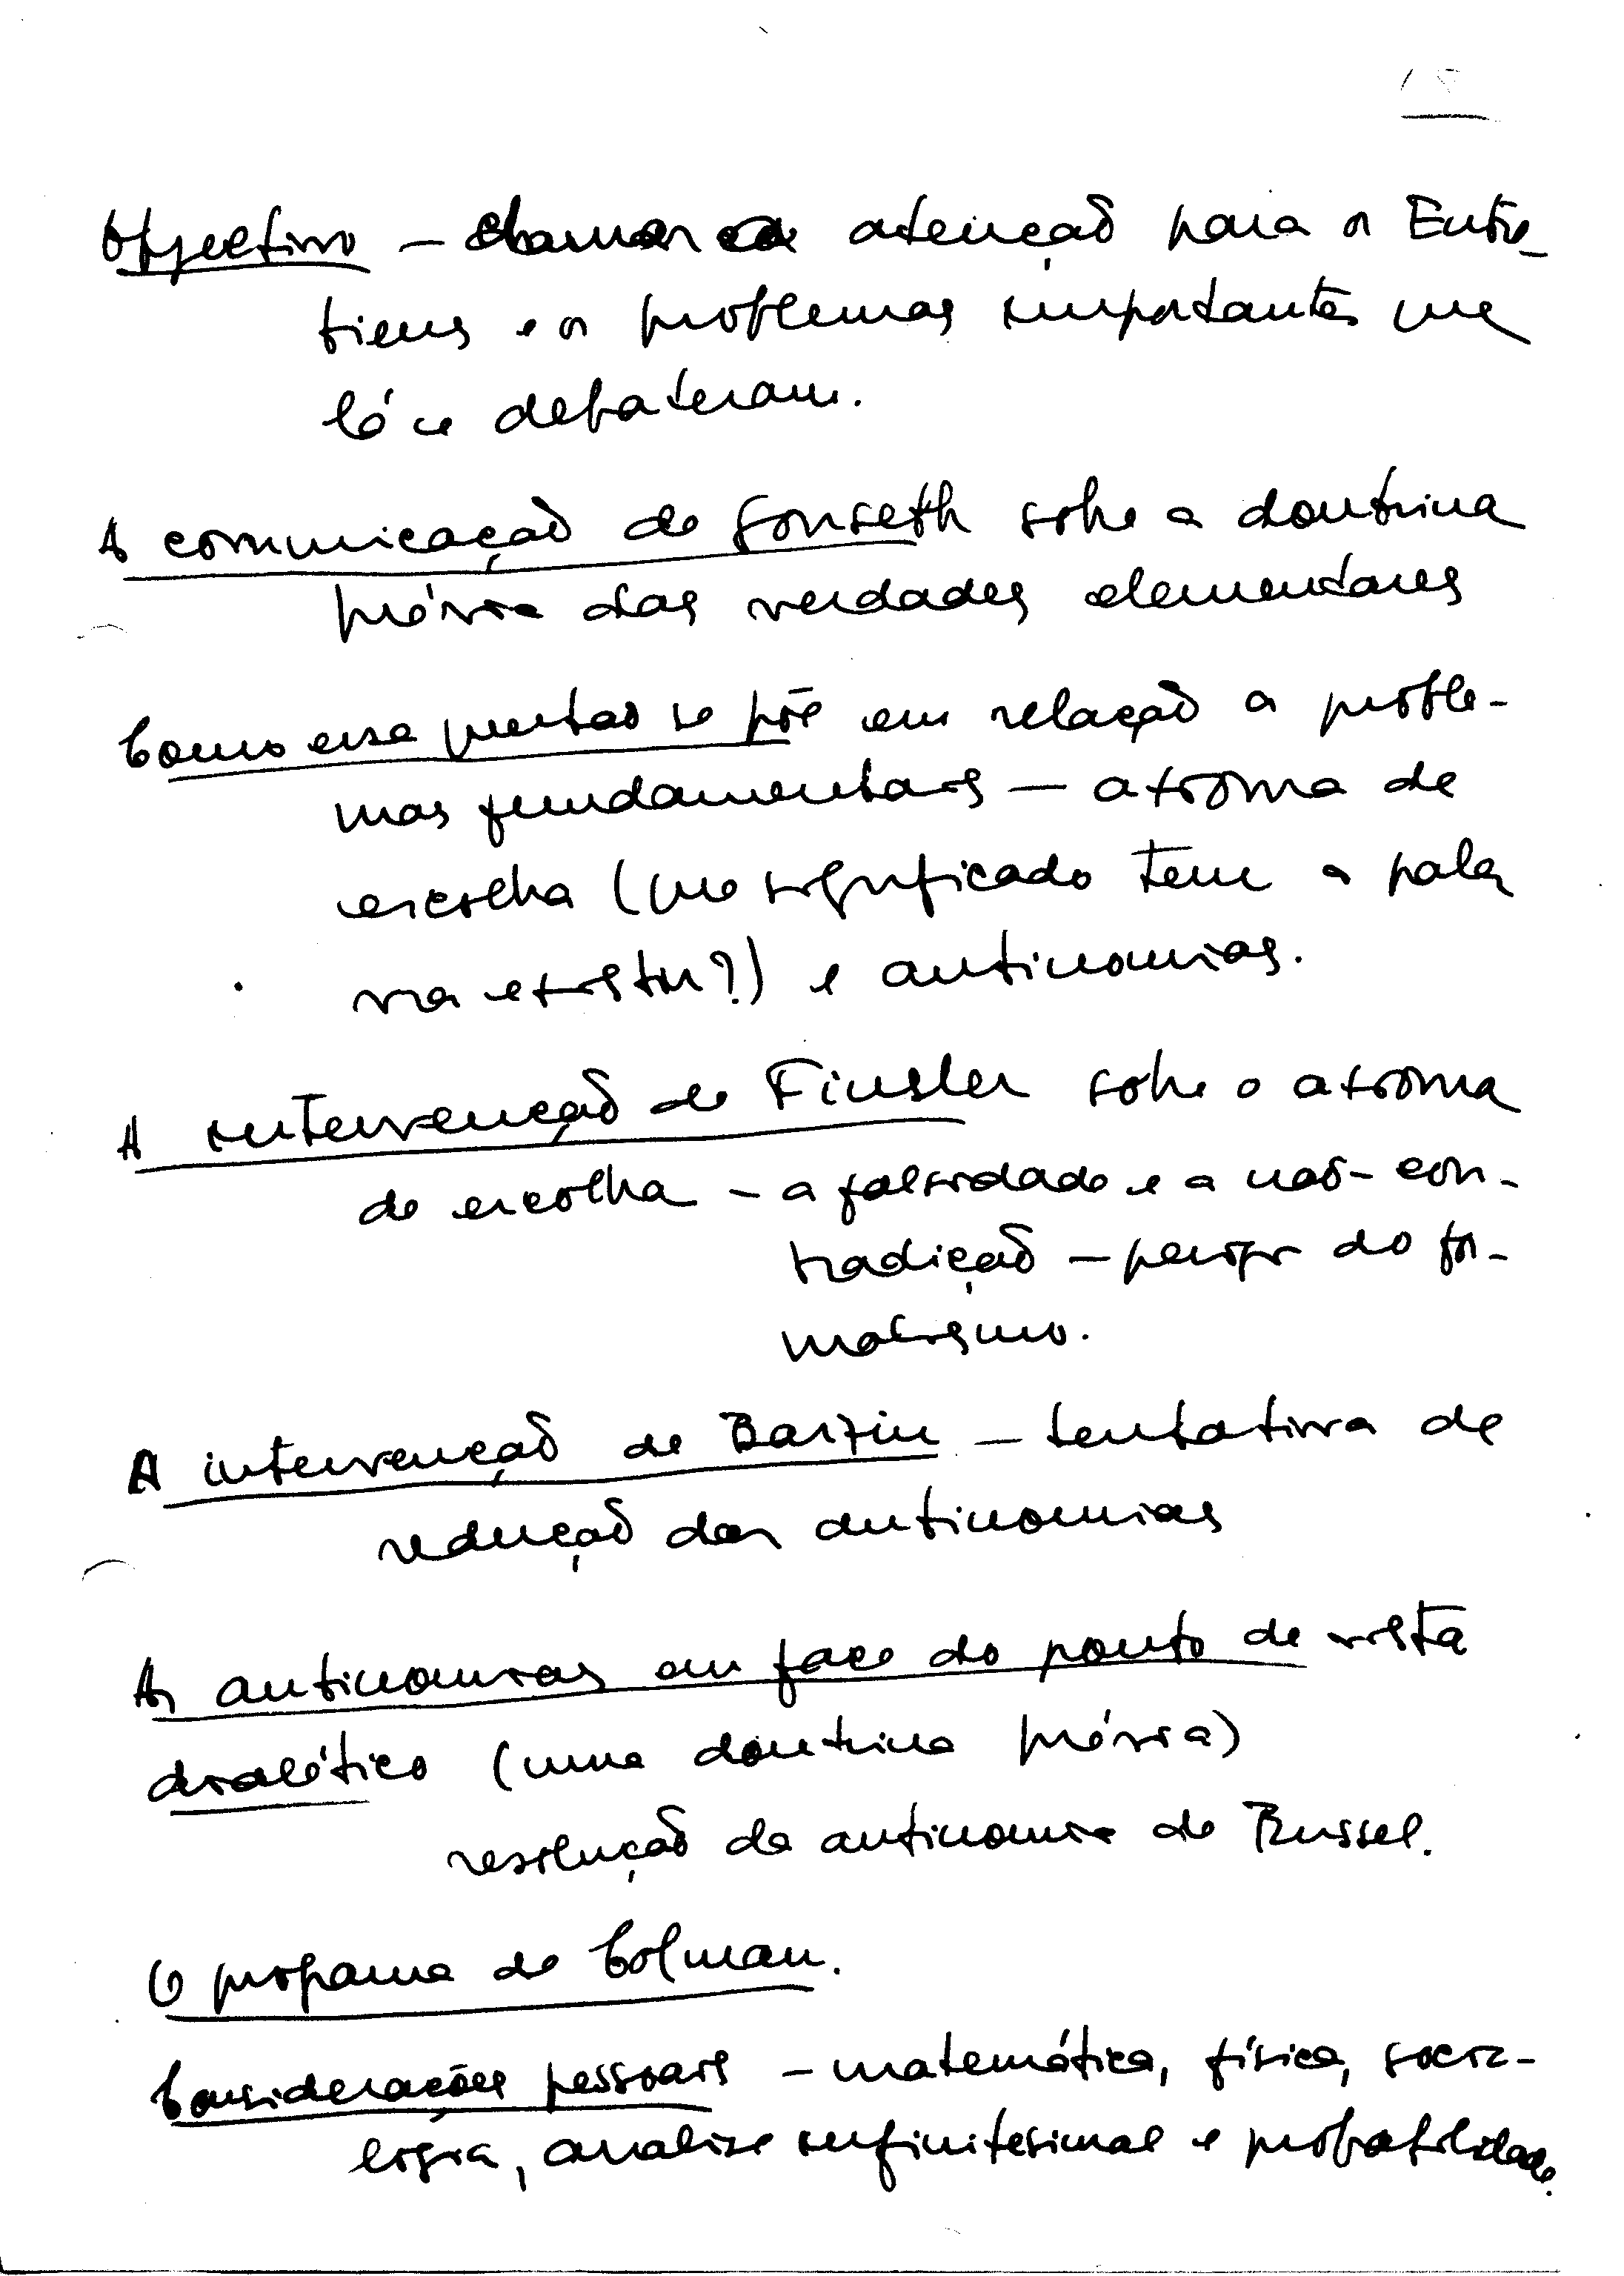 Objectivo – chamar a atenção para os Entre-
tiens e os problemas importantes que
lá se debateram.
A comunicação de Gonseth sobre a doutrina
prévia das verdades elementares
Como essa questão se põe em relação a proble-
mas fundamentais – axioma de
escolha (que significado tem a pala
vra existir?) e antinomias.
A intervenção de Finsler sobre o axioma
de escolha – a falsidade e a não-con-
tradição – perigo do for-
malismo.
A intervenção de Barzin – tentativa de
redução das antinomias
As antinomias em face do ponto de vista
dialético (uma doutrina prévia)
resolução da antinomia de Russel.
O programa de Colman.
Considerações pessoais – matemática, física, socio-
logia, análise infinitesimal e probabilidade.